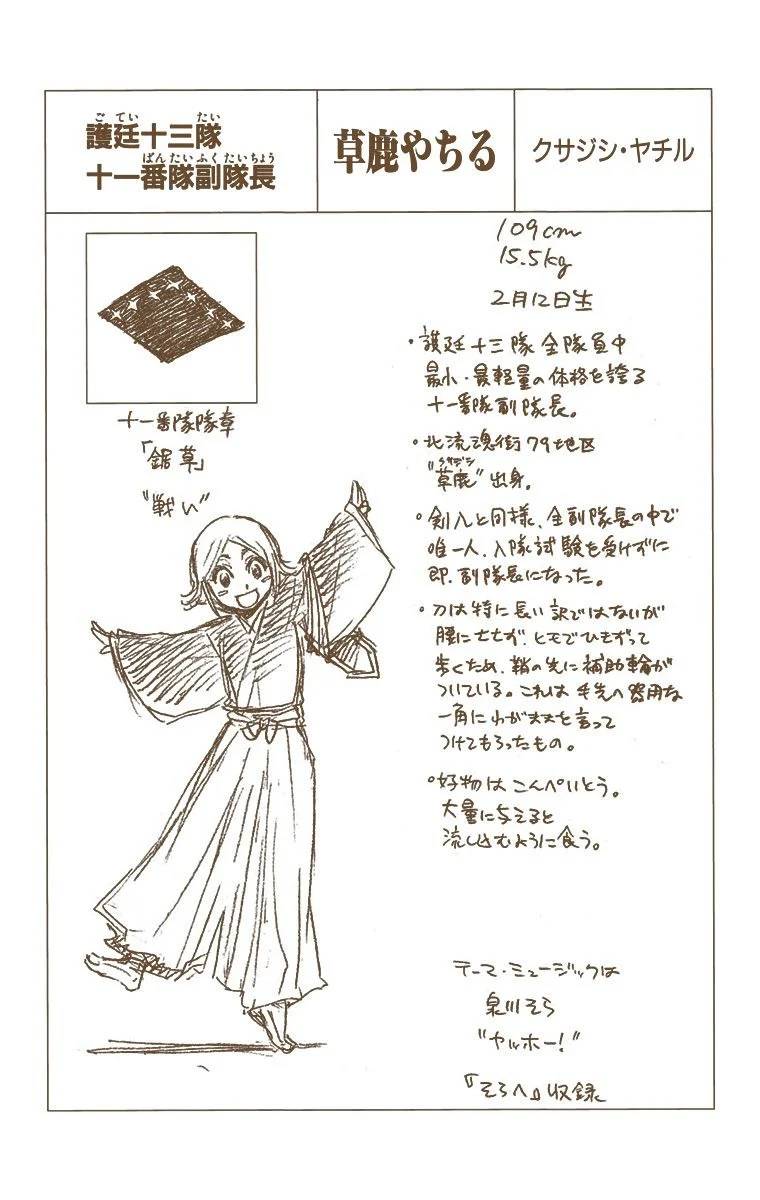 護廷十三隊
ごてい たい
十一番隊副隊長
ばんたいふくたいちょう
草鹿やちる
クサジシ・ヤチル
十一番隊隊章
「鋸草」
"戦い"
109cm
15.5kg
2月12日生
・護廷十三隊全隊員中
最小・最軽量の体格を誇る
十一番隊副隊長。
・北流魂街79地区
クサジシ
"草鹿"出身。
・剣八と同様、全副隊長の中で
唯一人、入隊試験を受けずに
即、副隊長になった。
・刀は特に長い訳ではないが
腰に七七が、ヒモでひきずって
歩くため、鞘の先に補助輪が
ついている。これは手先の器用な
一角にわがままを言って
つけてもらったもの。
・好物はこんぺいとう。
大量に与えると
流し込むように食う。
テーマ・ミュージックは
泉川そら
"ヤッホー!"
『そらへ』収録